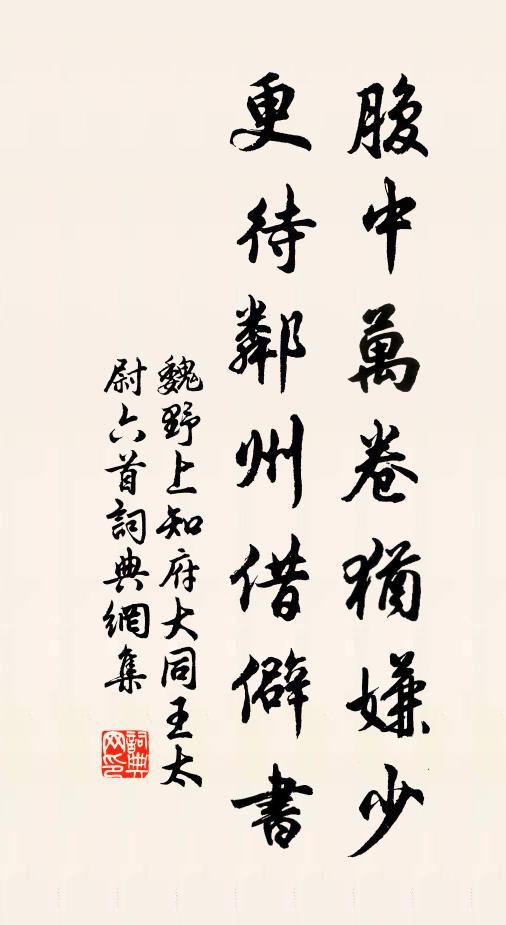 腹中萬卷猶嫌少
更待鄰州借僻書
魏野上知府大同王太
尉六首詞典網集
詞典
网印